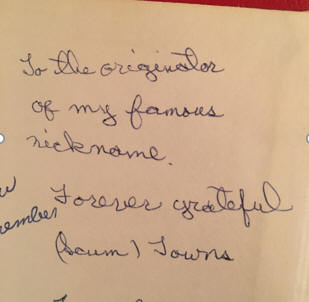 To the originator
of my famous
nickname.
Forever grateful
(Scum) Towns